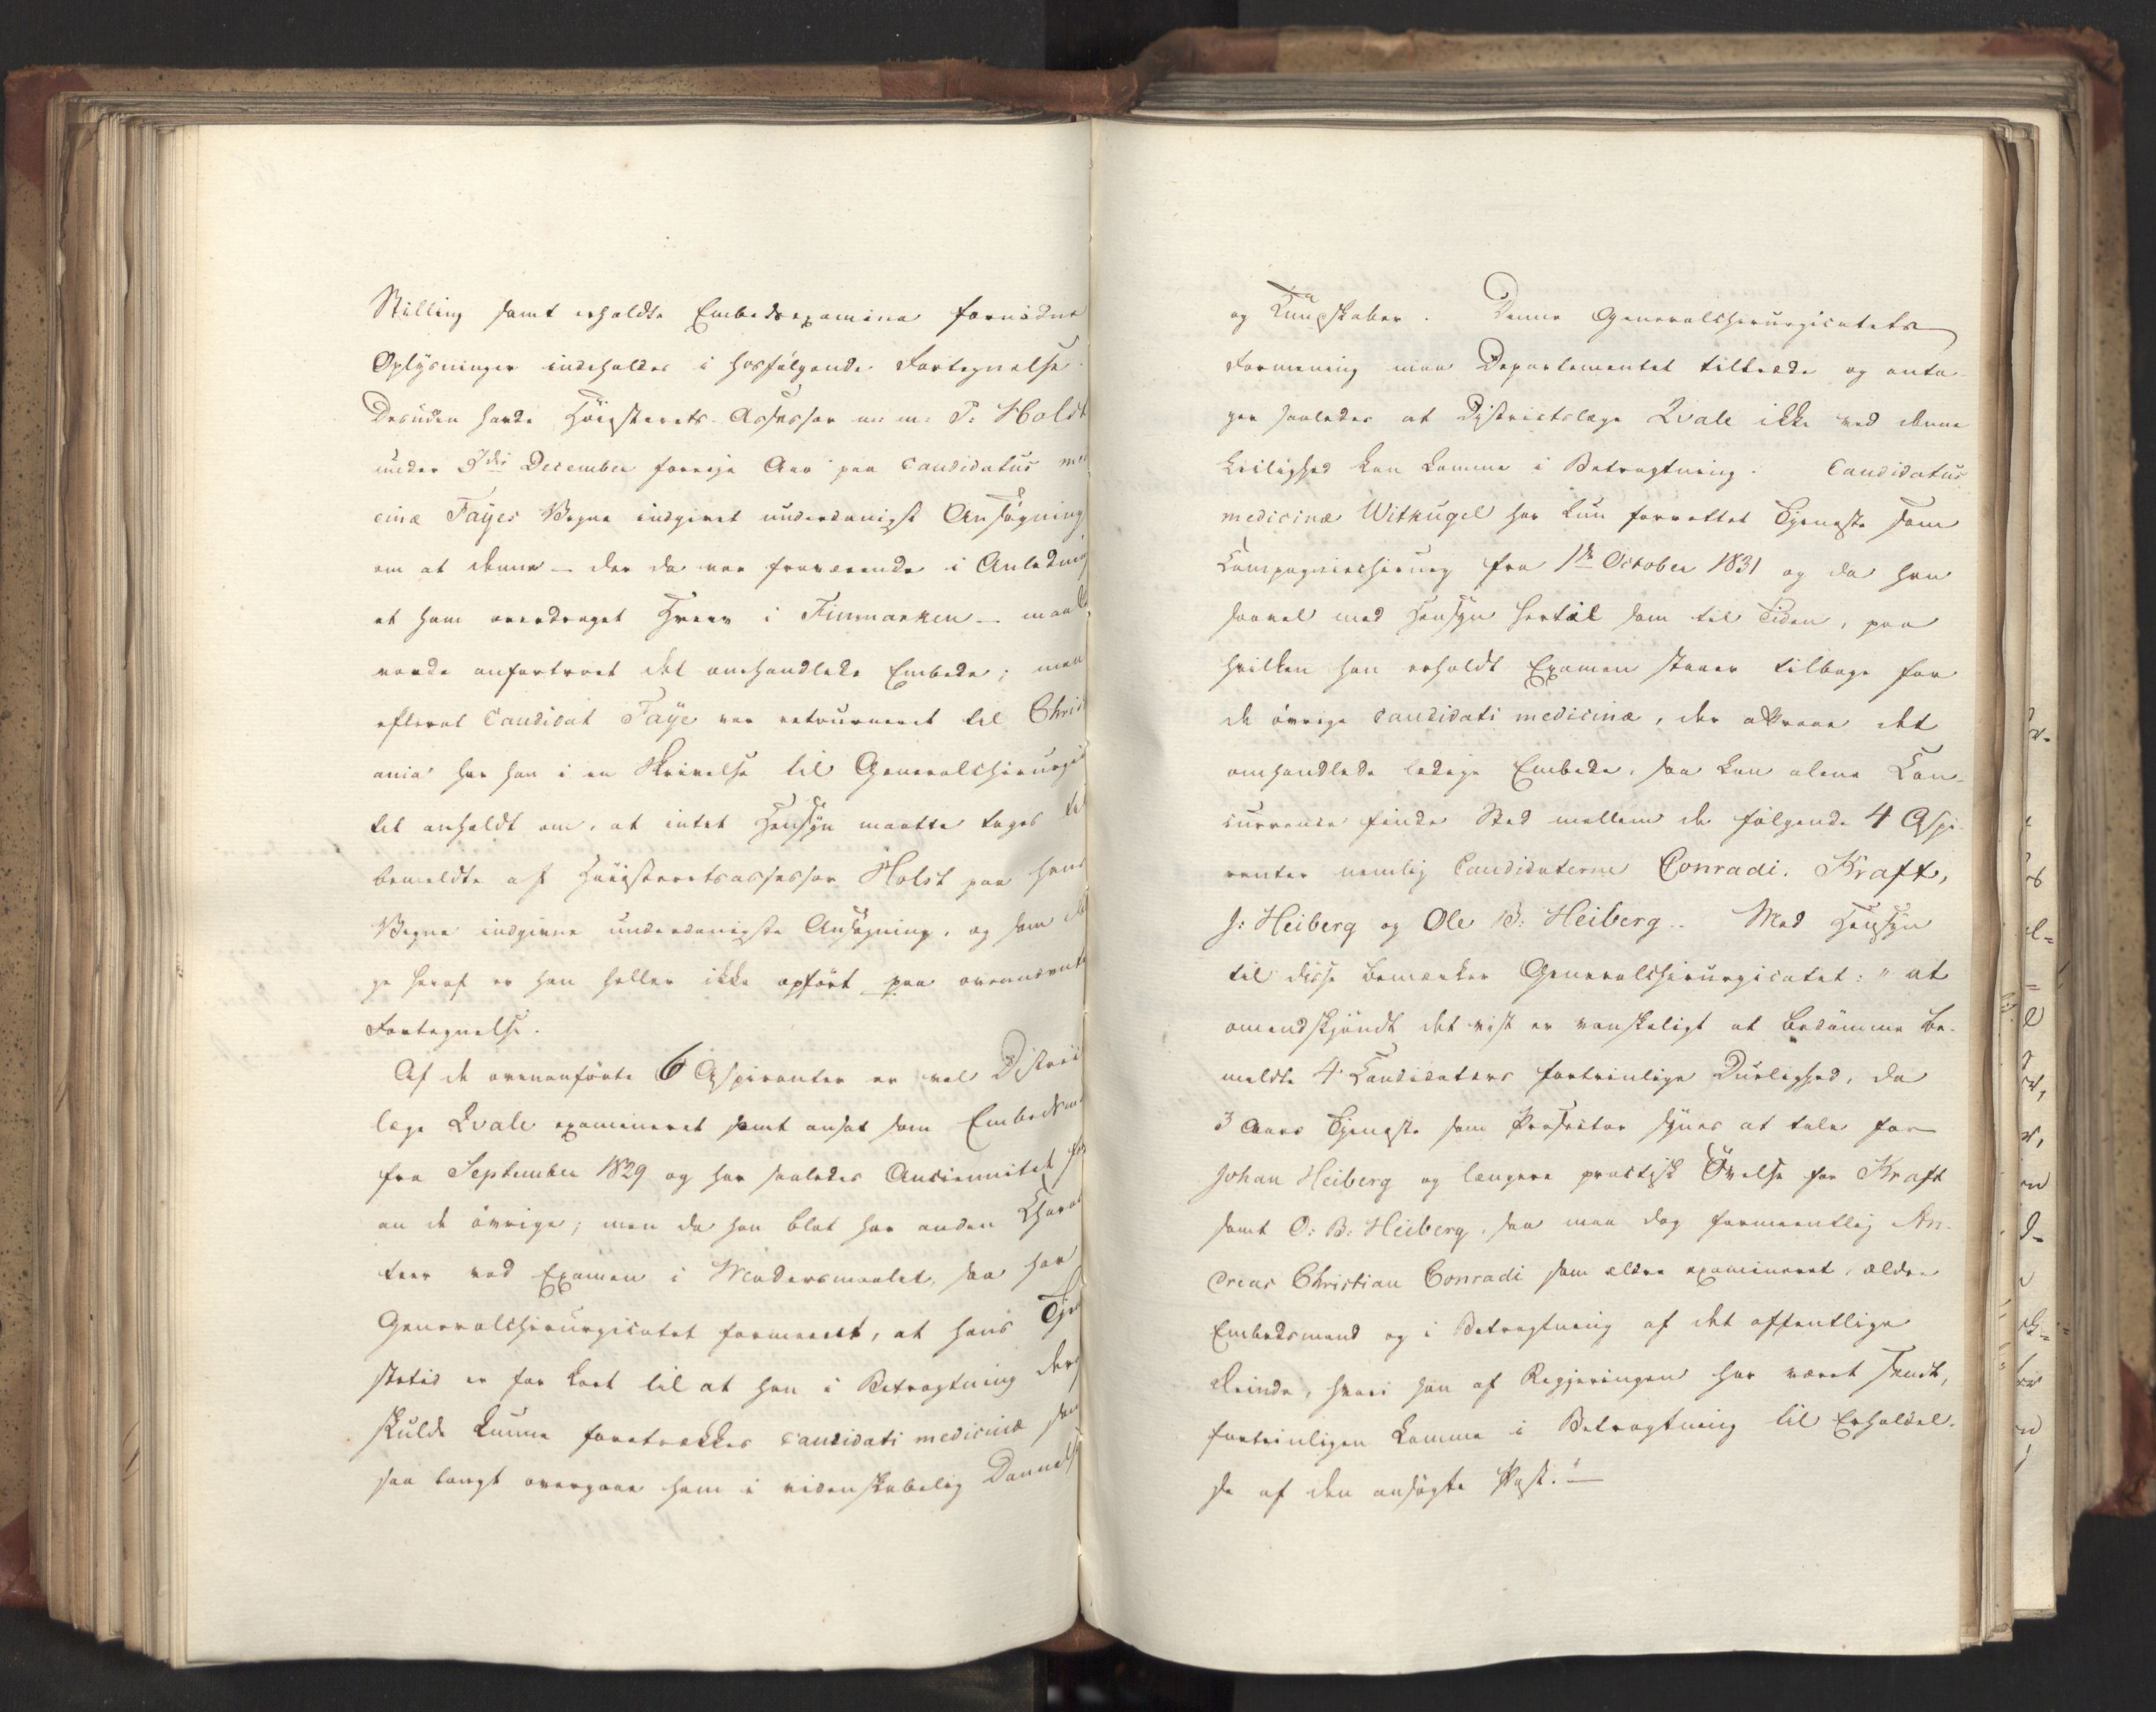 Stilling samt erholdte Embedsexamina fornødne
Oplysninger indeholdes i hosfølgende Fortegnelse.
Desuden havde Høiesterets-Assessor m: m: P: Holst
under 9de December forrige Aar paa Candidatus med
cinæ Fayes Vegne indgivet underdanigst Ansøgning
om at denne – der da var fraværende i Anledning
et ham overdraget Hverv i Finmarken – maatte
vorde anfortroet det omhandlede Embede; men
efterat Candidat Faye var retourneret til Christi
ania har han i en Skrivelse til Generalchirurgi
tet anholdt om, at intet Hensyn maatte tages til
bemeldte af Høiesteretsassessor Holst paa hans
Vegne indgivne underdanigste Ansøgning, og som
ge heraf er han heller ikke opført paa ovennævnte
Fortegnelse.
Af de ovenanførte 6 Aspiranter er vel Distric
læge Qvale examineret samt ansat som Embedsmd
fra September 1829 og har saaledes Anciennitet
an de øvrige; men da han blot har anden Charac
teer ved Examen i Modersmaalet, saa har
Generalchirurgicatet formeent, at hans Tje
stetid er for kort til at han i Betragtning
skulde kunne foretrækkes candidati medicinæ som
saa langt overgaae ham i videnskabelig Dannelse
og Kundskaber. Denne Generalchirurgicatets
Formening maa Departementet tiltræde og anta-
ger saaledes at Districtslæge Qvale ikke ved denne
Leilighed kan komme i Betragtning. Candidatus
medicinæ Witkugel har kun forrettet Tjeneste som
Compagniechirurg fra 1ste October 1831 og da han
saavel med Hensyn hertil som til Tiden, paa
hvilken han erholdt Examen staaer tilbage for
de øvrige candidati medicinæ, der attraae det
omhandlede ledige Embede, saa kan alene Con-
currence finde Sted mellem de følgende 4 Aspi-
ranter nemlig Candidaterne Conradi, Kraft,
J: Heiberg og Ole B: Heiberg. Med Hensyn
til disse bemærker Generalchirurgicatet: "at
omendskjøndt det vist er vanskeligt at bedømme be-
meldte 4 Candidaters fortrinlige Duelighed, da
3 Aars Tjeneste som Prosector synes at tale for
Johan Heiberg og længere practisk Øvelse for Kraft
samt O: B: Heiberg, saa maa dog formeentlig An-
dreas Christian Conradi som ældre examineret, ældre
Embedsmand og i Betragtning af det offentlige
Ærinde, hvori han af Regjeringen har været sendt,
fortrinligen komme i Betragtning til Erholdel-
se af den ansøgte Post." –